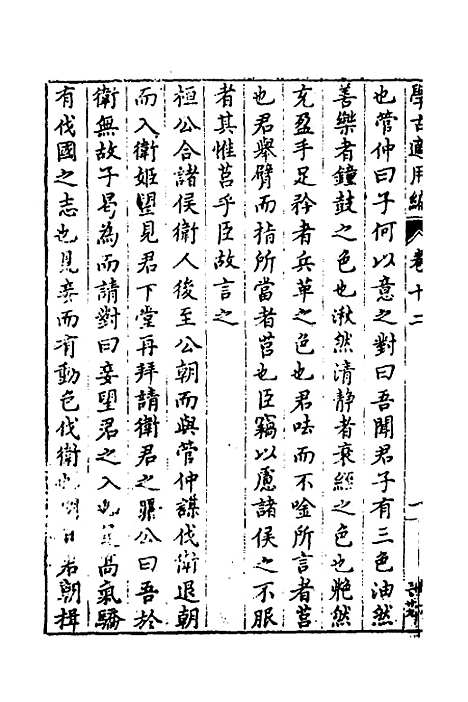 學古適用編 卷十二
也管仲曰子何以意之對曰吾聞君子有三色油然
善樂者鐘鼓之色也湫然清靜者衰絰之色也艴然
充盈手足矜者兵革之色也君呿而不唫所言者莒
也君舉臂而指所當者莒也臣竊以慮諸侯之不服
者其惟莒乎臣故言之
桓公合諸侯衛人後至公朝而與管仲謀伐衛退朝
而入衛姬望見君下堂再拜請衛君之罪公曰吾於
衛無故子曷為而請對曰妾望君之入也足高氣驕
有伐國之志也見妾而有動色伐衛也明日君朝揖